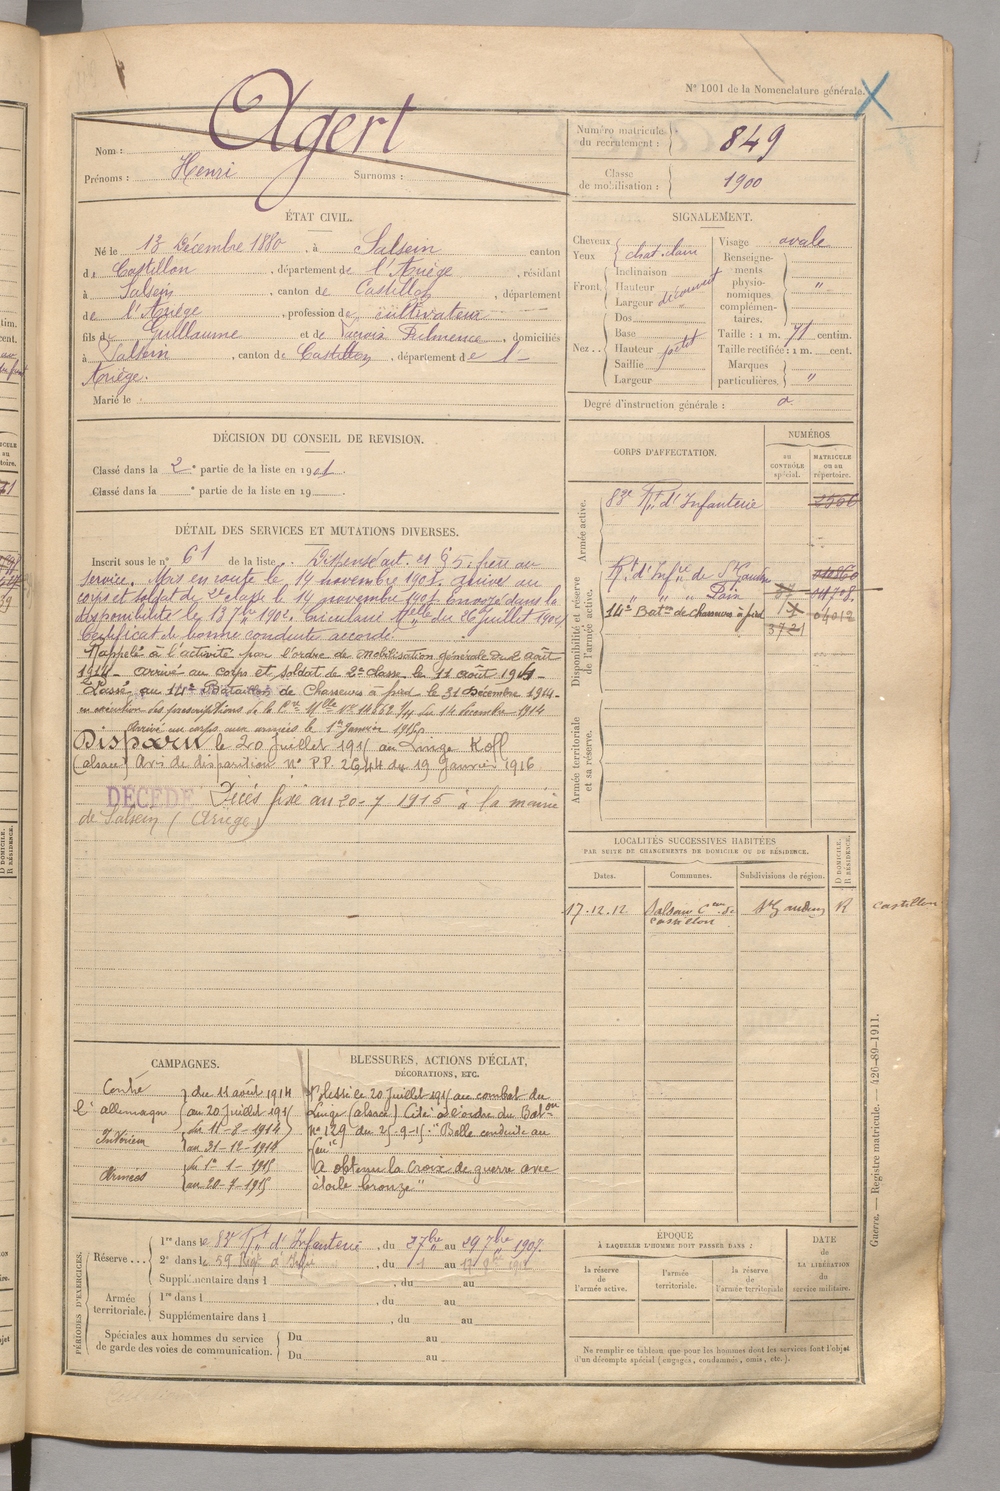 N° 1001 de la Nomenclature générale.
X
Agert
Nom :
Prénoms : Henri Surnoms :
Numéro matricule du recrutement : 849
Classe de mobilisation : 1900
ÉTAT CIVIL.
Né le 13 Décembre 1880, à Salsein canton
de Castillon, département de l'Ariège, résidant
à Salsein, canton de Castillon, département
de l'Ariège, profession de cultivateur
fils de Guillaume et de Lacroix Philmence, domiciliés
à Salsein, canton de Castillon, département de l'-
Ariège.
Marié le
SIGNALEMENT.
Cheveux
Yeux chat. clair
Front. Inclinaison
Hauteur
Largeur découvert
Nez.. Dos
Base
Hauteur petit
Saillie
Largeur
Visage ovale
Renseigne-
ments
physio-
nomiques
complémen-
taires. "
Taille : 1 m. 71 centim.
Taille rectifiée : 1 m. cent.
Marques
particulières. "
Degré d'instruction générale :
DÉCISION DU CONSEIL DE REVISION.
Classé dans la 2e partie de la liste en 1901.
Classé dans la e partie de la liste en 19 .
DÉTAIL DES SERVICES ET MUTATIONS DIVERSES.
Inscrit sous le n° 61 de la liste. Dispensé art. 21 § 5. frère au
service. Mis en route le 14 novembre 1901. arrivé au
corps et soldat de 2e classe le 14 novembre 1901. Envoyé dans la
disponibilité le 13 7bre 1902. Circulaire Mlle du 26 juillet 1902
Certificat de bonne conduite accordé.
Rappelé à l'activité par l'ordre de mobilisation générale du 2 août
1914 - arrivé au corps et soldat de 2e classe le 11 août 1914 -
Passé au 14e Bataillon de Chasseurs à pied le 31 Décembre 1914 -
en exécution des prescriptions de la Cre Mlle N° 14662 1/4 du 14 décembre 1914
Arrivé au corps aux armées le 1er Janvier 1915
Disparu le 20 Juillet 1915 au Linge Koff
(alsace) Avis de disparition n° P.P. 2644 du 19 Janvier 1916
DÉCÉDÉ Décès fixé au 20-7 1915 à la mairie
de Salsein (Ariège)
CORPS D'AFFECTATION.
NUMÉROS
au CONTRÔLE spécial.
MATRICULE ou au répertoire.
Armée active.
83e Rt d'Infanterie
Disponibilité et réserve de l'armée active.
Rt d'Infie de St Gaudens
" " " Foix
14e Baton de Chasseurs à pied 3721
Armée territoriale et sa réserve.
LOCALITÉS SUCCESSIVES HABITÉES
PAR SUITE DE CHANGEMENTS DE DOMICILE OU DE RÉSIDENCE.
D DOMICILE. R RÉSIDENCE.
Dates. Communes. Subdivisions de région.
17.12.12 Salsein Con de St Gaudens R Castillon
Castillon
CAMPAGNES.
Contre du 11 août 1914
l'allemagne au 20 Juillet 1915
Intérieur du 11-8-1914
au 31-12-1914
Armées du 1er-1-1915
au 20-7-1915
BLESSURES, ACTIONS D'ÉCLAT,
DÉCORATIONS, ETC.
Blessé le 20 Juillet 1915 au combat du
Linge (alsace) Cité à l'ordre du Baton
N° 129 du 25-9-15. "Belle conduite au
feu"
A obtenu la Croix de guerre avec
étoile bronze"
PÉRIODES D'EXERCICES.
Réserve... 1re dans le 83e Rt d'Infanterie, du 2 7bre au 29 7bre 1907.
2e dans le 59 Regt d'Infie, du 1 au 17
Supplémentaire dans l , du au
Armée territoriale. 1re dans l , du au
Supplémentaire dans l , du au
Spéciales aux hommes du service
de garde des voies de communication. Du au
Du au
ÉPOQUE
À LAQUELLE L'HOMME DOIT PASSER DANS :
la réserve de l'armée active.
l'armée territoriale.
la réserve de l'armée territoriale
DATE de LA LIBÉRATION du service militaire.
Ne remplir ce tableau que pour les hommes dont les services font l'objet
d'un décompte spécial (engagés, condamnés, omis, etc.).
Guerre. — Registre matricule. — 426-89-1911.